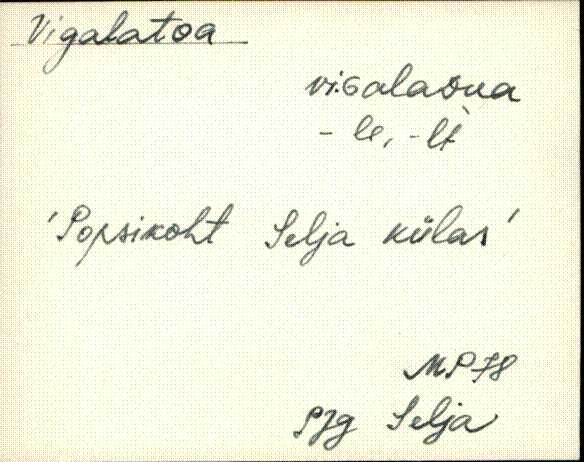 Vigalatoa
viɢalaoua
- le, - lt̀
'Popsikoht Selja külas'
MP78
PJg Selja